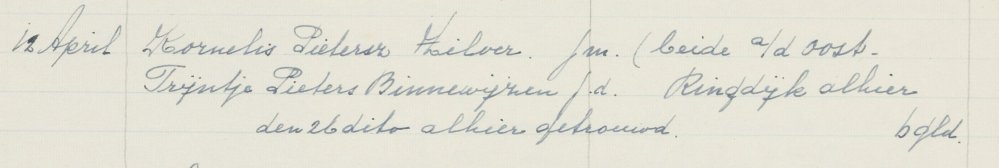 12 April Kornelis Pietersz Zilver. j.m. ( beide a/d oost-
Trijntje Pieters Binnewijzen j.d. Ringdijk alhier
den 26 dito alhier getrouwd. 6 gld.